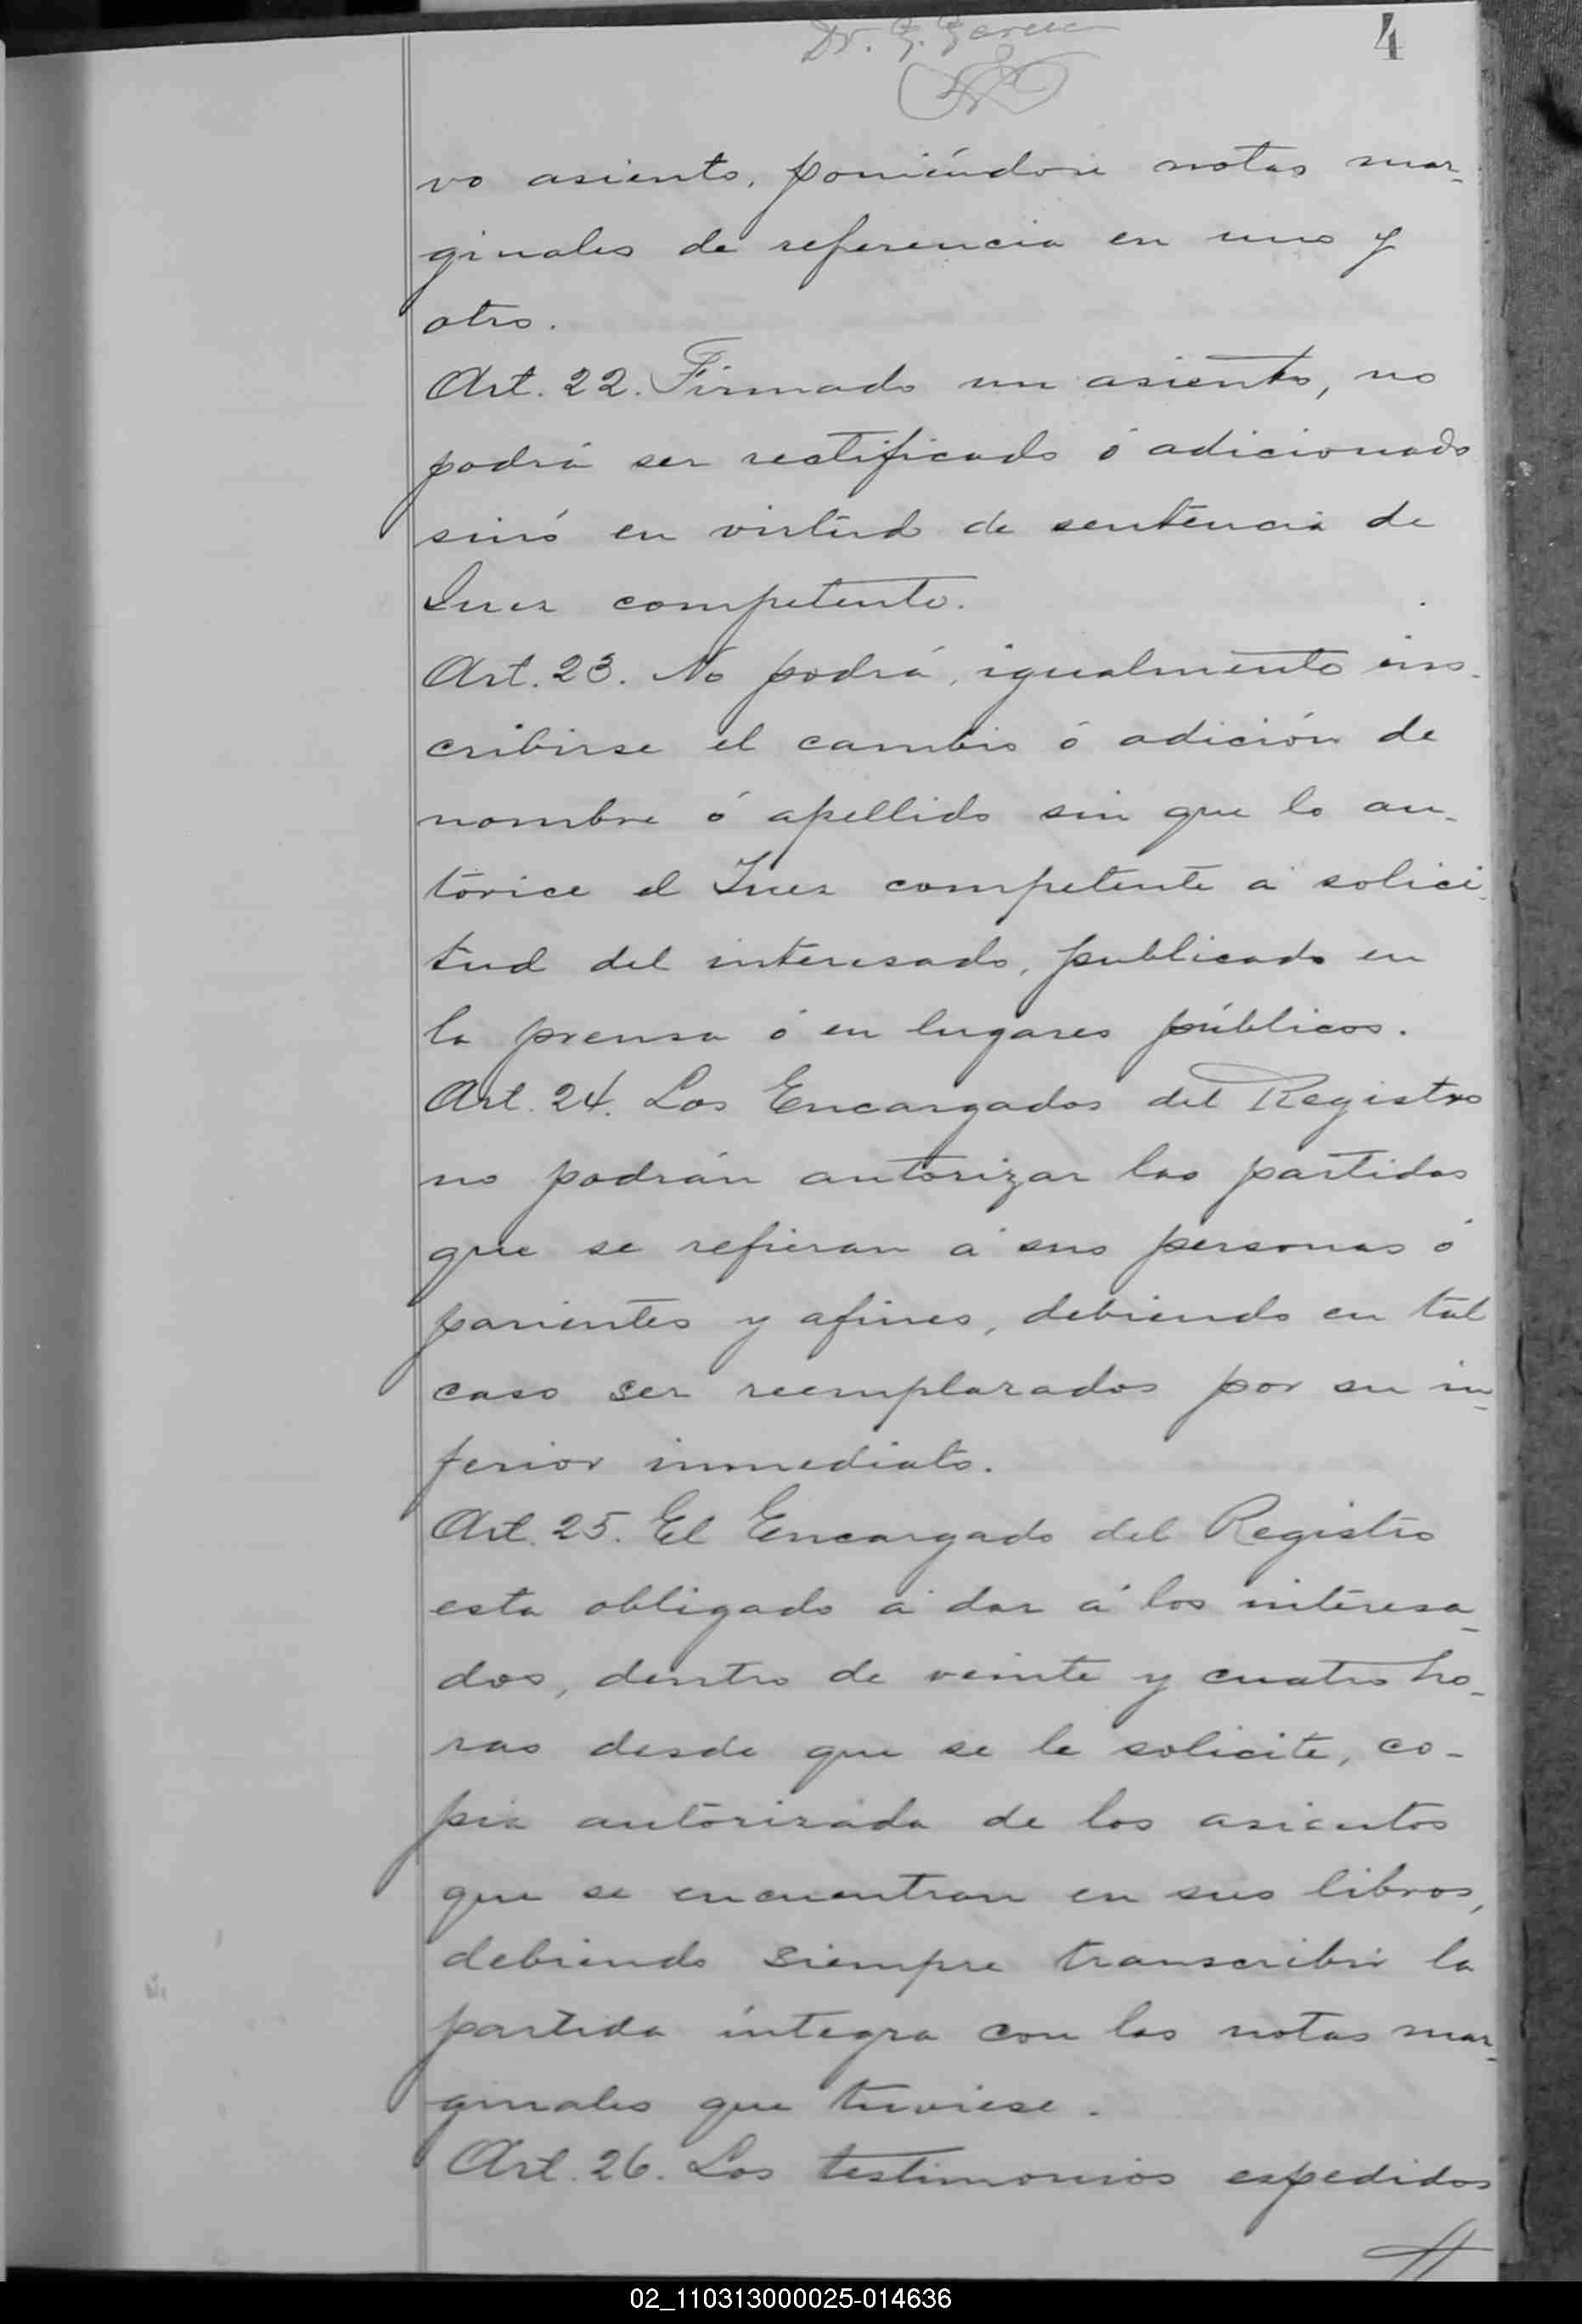 Dr. G. Garcia
4
vo asiento, poniéndose notas mar-
ginales de referencia en uno y
otro.
Art. 22. Firmado un asiento, no
podrá ser rectificado ó adicionado
sinó en virtud de sentencia de
Juez competente.
Art. 23. No podrá, igualmente ins-
cribirse el cambio ó adición de
nombre ó apellido sin que lo au-
torice el Juez competente á solici-
tud del interesado, publicado en
la prensa ó en lugares públicos.
Art. 24. Los Encargados del Registro
no podrán autorizar las partidas
que se refieran á sus personas ó
parientes y afines, debiendo en tal
caso ser reemplazados por su in-
ferior inmediato.
Art. 25. El Encargado del Registro
esta obligado á dar á los interesa-
dos, dentro de veinte y cuatro ho-
ras desde que se le solicite, co-
pia autorizada de los asientos
que se encuentran en sus libros,
debiendo siempre transcribir la
partida íntegra con las notas mar-
ginales que tuviese.
Art. 26. Los testimonios espedidos
02_110313000025-014636